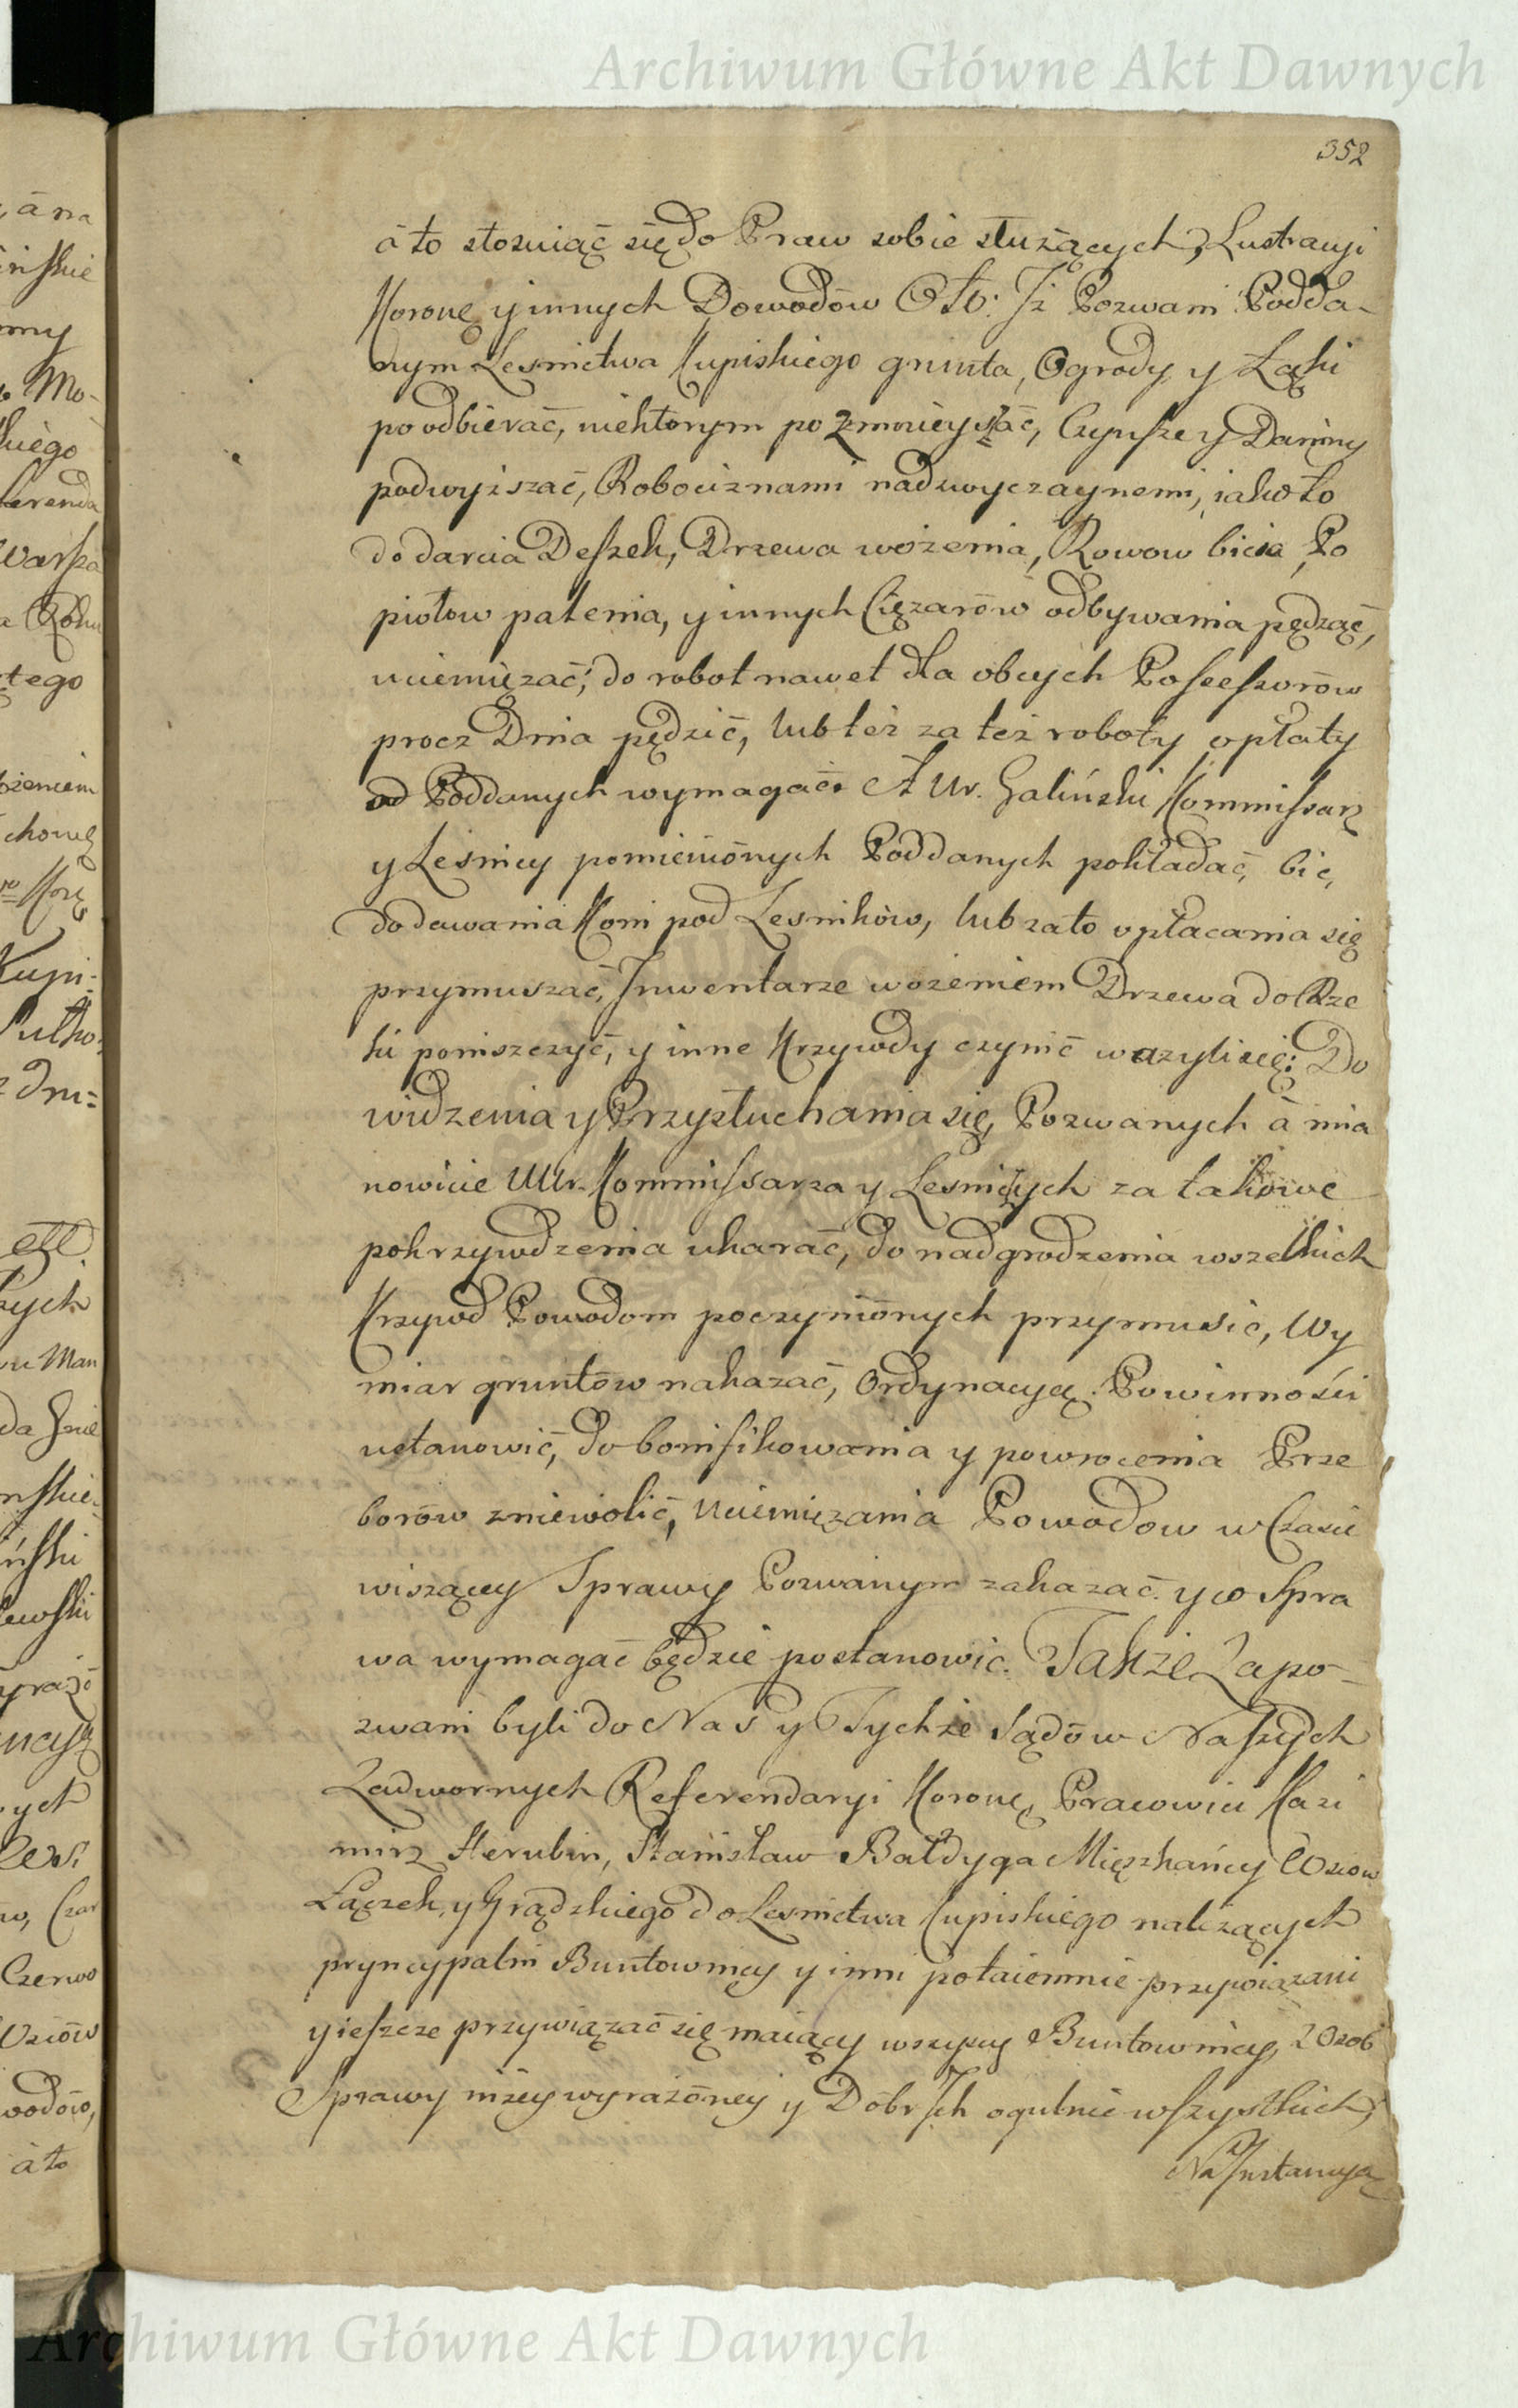 Archiwum Główne Akt Dawnych
352
à to stosuiąć się do Praw sobie służących, Lustracyi
Koronę y innych Dowodów Oto: Iż Pozwani Podda-
nym Lesnictwa Kupiskiego grunta, Ogrody y Łąki
poodbierać, niektorym pozmnieyszać, Czynsze y Daniny
podwyższać, Robociznami nadzwyczaynemi, iako to
do darcia Deszek, Drzewa wożenia, Rowow bicia, Po
piołow palenia, y innych Ciężarów odbywania pędząć,
uciemiężać, do robot nawet dla obcych Possessorów
procz Dnia pędzić, lub też za też roboty opłaty
od Poddanych wymagać. A Ur. Galiński Kommissarz
y Lesnicy pomienionych Poddanych pokładać, bić,
do dawania Koni pod Lesników, lub za to opłacania się
przymuszać, Inwentarze wożeniem Drzewa do Rze
ki poniszczyć, y inne Krzywdy czynić ważyli się: Do
widzenia y Przysłuchania się, Pozwanych à mia
nowicie UUr. Kommissarza y Lesniczych za takowe
pokrzywdzenia ukarać, do nadgrodzenia wszelkich
Krzywd Powodom poczynionych przymusić, Wy
miar gruntów nakazać, Ordynacyą Powinności
ustanowić, do bonifikowania y powrocenia Prze
borów zniewolić, Uciemiężania Powodow w Czasie
wiszącey Sprawy Pozwanym zakazać y co Spra
wa wymagać będzie postanowić. Takze Zapo-
zwani byli do Nas y Tychże Sądów Naszych
Zadwornych Referendaryi Koronę, Pracowici Kazi
mirz Herubin, Stanisław Bałdyga Mięszkańcy Wsiow
Łączek, y Grądzkiego do Lesnictwa Kupiskiego należących
pryncypalni Buntownicy y inni potaiemnie przywiązani
y ieszcze przywiązać się maiący wszyscy Buntownicy, z Osob
Sprawy niżey wyrażoney y Dobr Ich ogulnie wszystkich,
Na Instancyą
Archiwum Główne Akt Dawnych